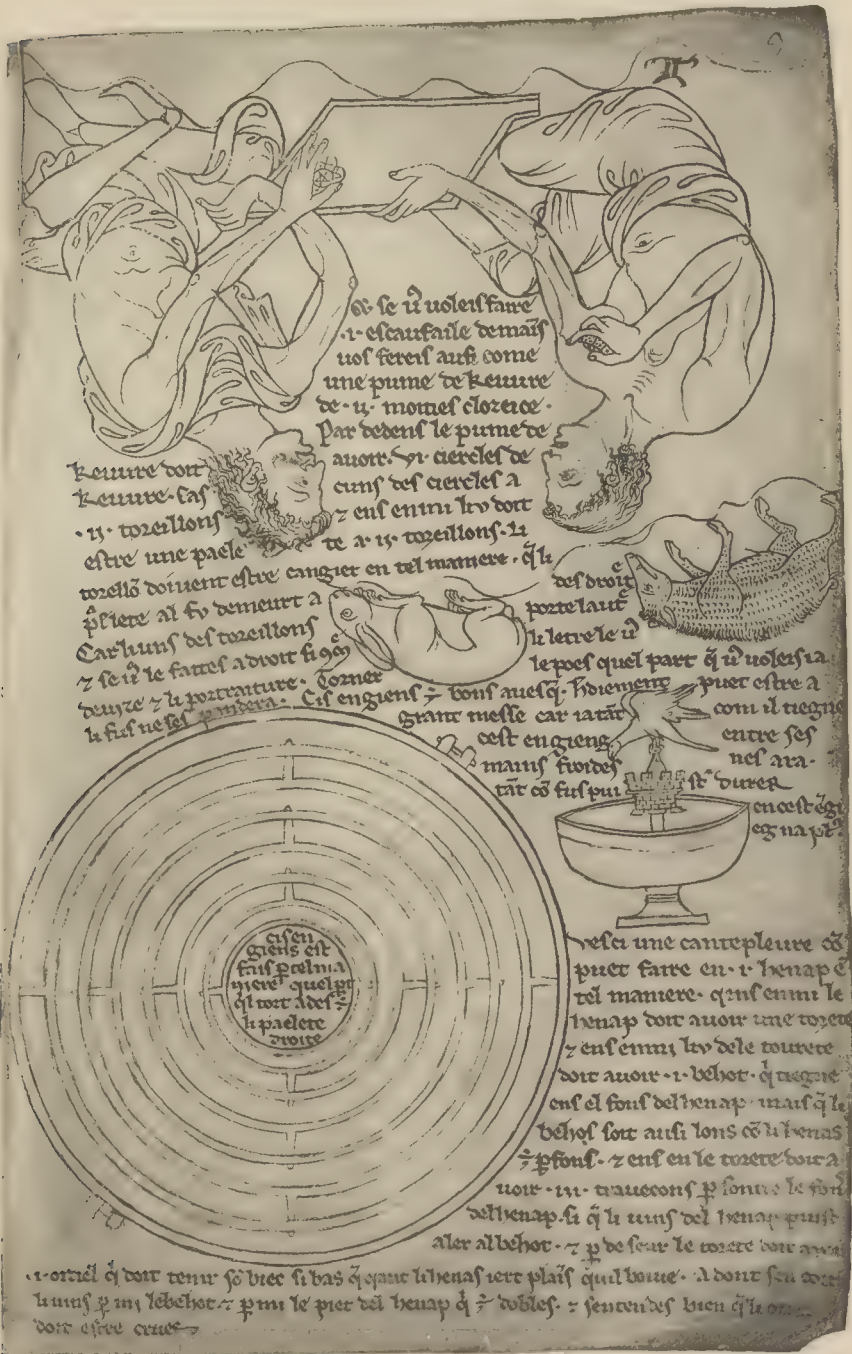 se uͦ uoleis faire
·i· escaufaile demaīs
uos fereis ausi come
une pume de keuure
de ·ij· moities clozeice·
Par dedens le pume de
keuure doit auoir ·vi· ciercles de
keuure· cas cuns des ciercles a
·ij· toreillons ⁊ ens enmi liv doit
estre une paele te a ·ij· toreillons· li
torellō doiuent estre cangiet en tel maniere· q̄ li
paͤlete al fv demeurt a des droiͭͤ
Car liuns des toreillons porte lautͤ
⁊ se uͦ le faites a droit si 9mͤ li letre le uͦ
deuize ⁊ li portraiture· Torner le poes quel part q̄ uͦ uoleis ia
li fus ne ses pandera· Cis engiens ÷ bons auesq̄· hdiement puet estre a
grant messe car iatāt com il tiegne
cest engieng entre ses
mains froides nes ara·
tāt cō fus puist durer
encest ēgi
eg na pl9
cis en
giens est
fais p tel ma
niere quel pt
qil tort ades ÷
li paelete
droite
Vesci une cantepleure cō
puet faire en ·i· henap ē
tel maniere· qins enmi le
henap doit auoir une torete
⁊ ens enmi liv dele tourete
doit auoir ·i· behot· q̄ tiegne
ens el fons del henap· mais q̄ li
behos soit ausi lons cō li henas
÷ pfons· ⁊ ens en le torete doit a
uoir ·iii· trauecons p sontre le fons
delhenap· si q̄ li uins del henap puist
aler al behot· ⁊ p de seur le torete doit auoir
·i· oiziel q̄ doit tenir sō biec si bas q̄ qant li henas iert plaīs quil boiue· Adont
li uins p mi le behot ⁊ p mi le piet del henap q̄ ÷ dobles· ⁊ sentendes bien q̄ li
doit estre crues